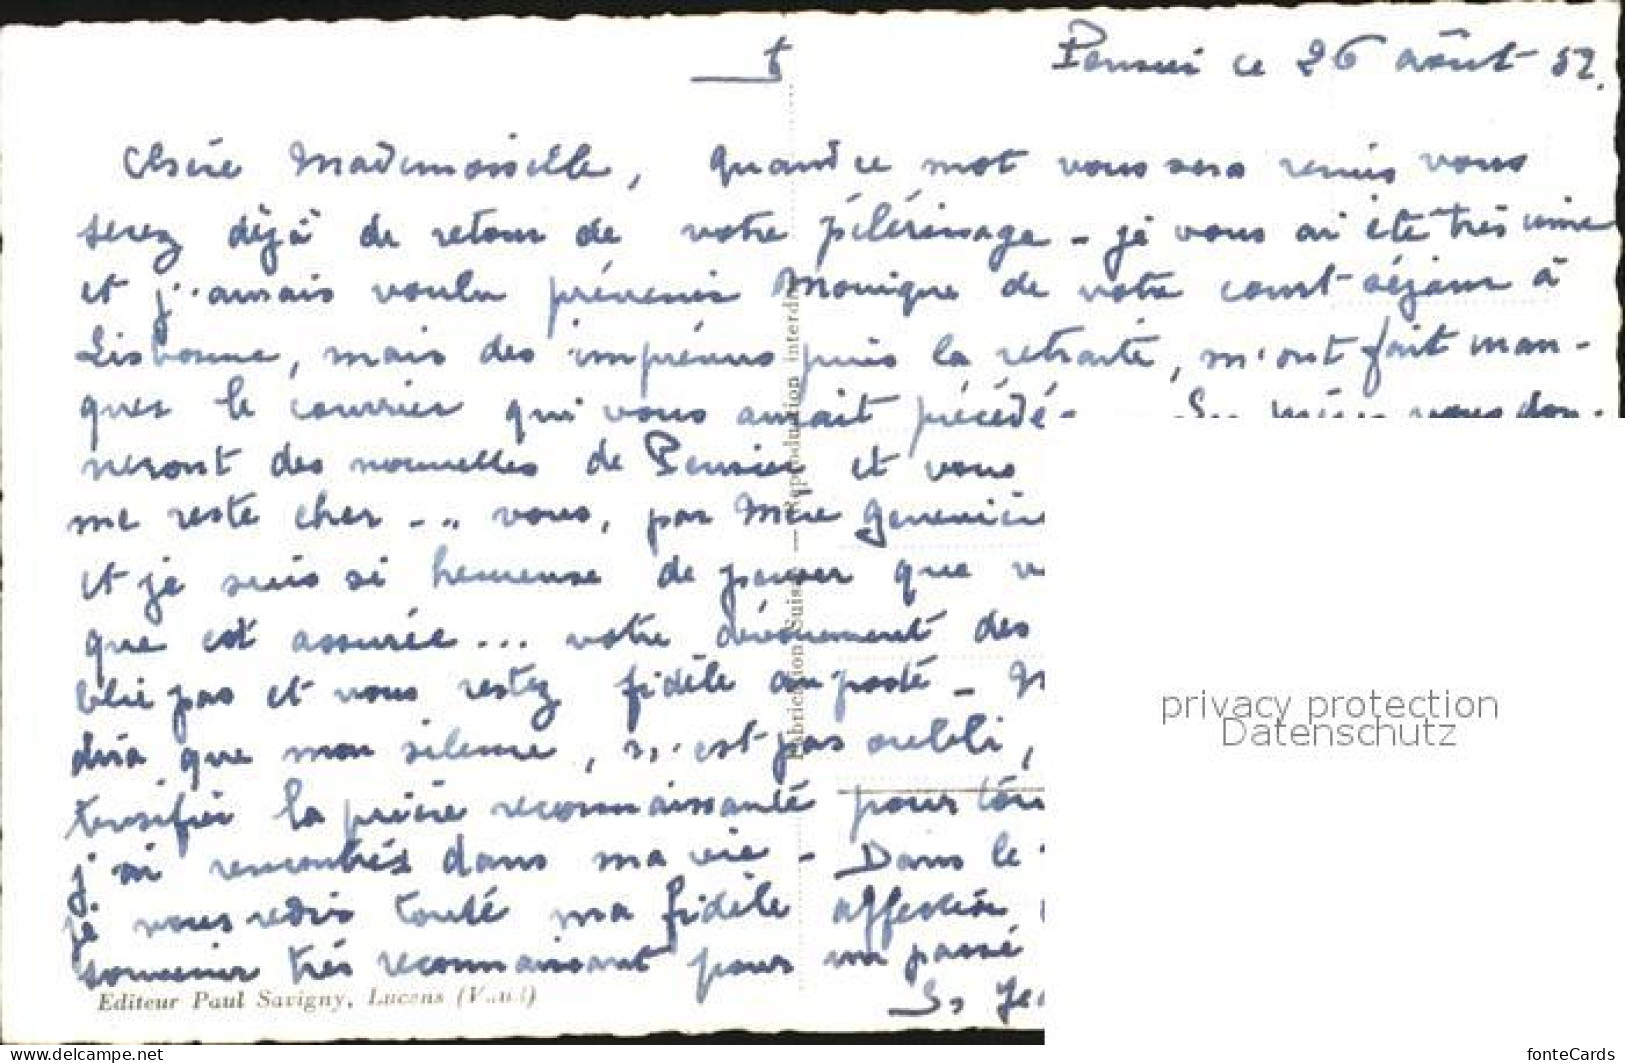 Pensier ce 26 août 52.
Chère Mademoiselle, quand ce mot vous sera remis vous
serez déjà de retour de votre pélérinage - je vous ai été très unie
et j'aurais voulu prévenir Monique de votre court séjour à
Lisbonne, mais des imprévus puis la retraite, m'ont fait man-
quer le courrier qui vous aurait précédé - vous don-
neront des nouvelles de Pensier et vous
me reste cher ... vous, par Mère Geneviè
et je suis si heureuse de penser que v
que est assurée ... votre dévouement des
blie pas et vous restez fidèle au poste - M
dira que mon silence, n'est pas oubli,
tensifier la prière reconnaissante pour tous
j'ai rencontrés dans ma vie - Dans le
je vous redis toute ma fidèle affection
souvenir très reconnaissant pour un passé
Sr Je
Editeur Paul Savigny, Lucens (Vaud)
Fabrication Suisse — Reproduction interdite
privacy protection
Datenschutz
www.delcampe.net
fonteCards